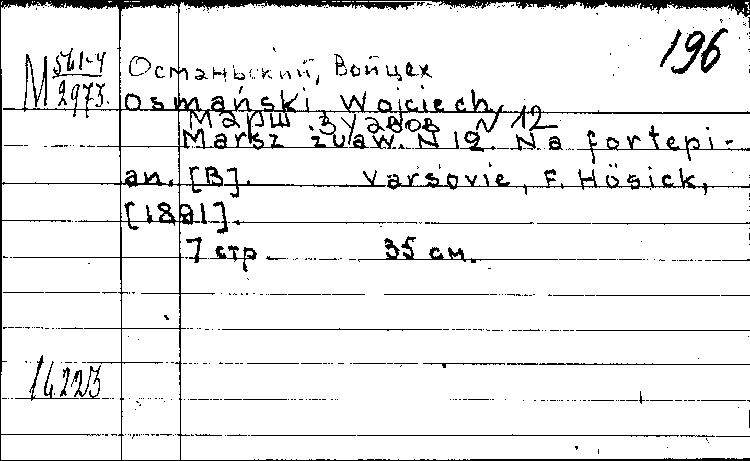 196
М 561-4
2973.
Османьский, Войцех
Osmański Wojciech.
Марш зуавов N 12
Marsz żuaw. N 12. Na fortepi-
an. [B]. Varsovie, F. Hösick,
[1881].
7 стр. 35 см.
14223